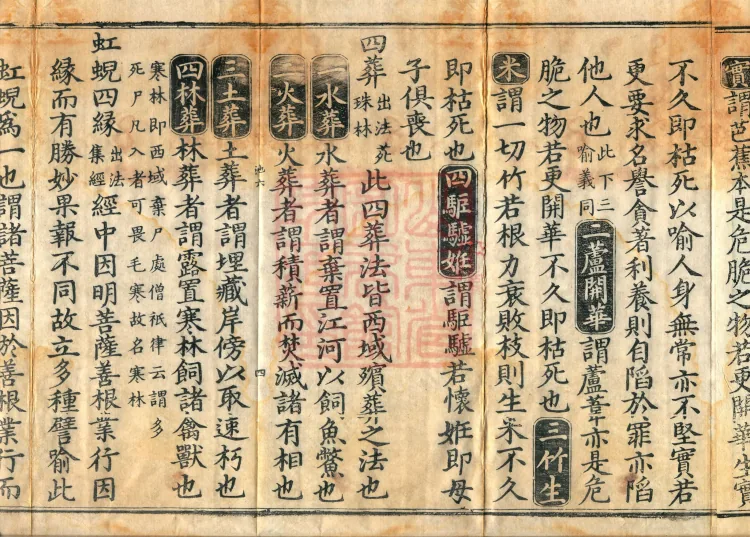 實謂芭蕉本是危脆之物若更開華生實
不久即枯死以喻人身無常亦不堅實若
更要求名譽貪著利養則自陷於罪亦陷
他人也此下三喻義同二蘆開華謂蘆葦亦是危
脆之物若更開華不久即枯死也三竹生
米謂一切竹若根力衰敗枝則生米不久
即枯死也四駏驉姙謂駏驉若懷姙即母
子俱喪也
四葬出法苑珠林此四葬法皆西域殯葬之法也
一水葬水葬者謂棄置江河以飼魚鱉也
二火葬火葬者謂積薪而焚滅諸有相也
池六
四
三土葬土葬者謂埋藏岸傍以取速朽也
四林葬林葬者謂露置寒林飼諸禽獸也
寒林即西域棄尸處僧祇律云謂多
死尸凡入者可畏毛寒故名寒林
虹蜺四緣出法集經經中因明菩薩善根業行因
緣而有勝妙果報不同故立多種譬喻此
虹蜺為一也謂諸菩薩因於善根業行而